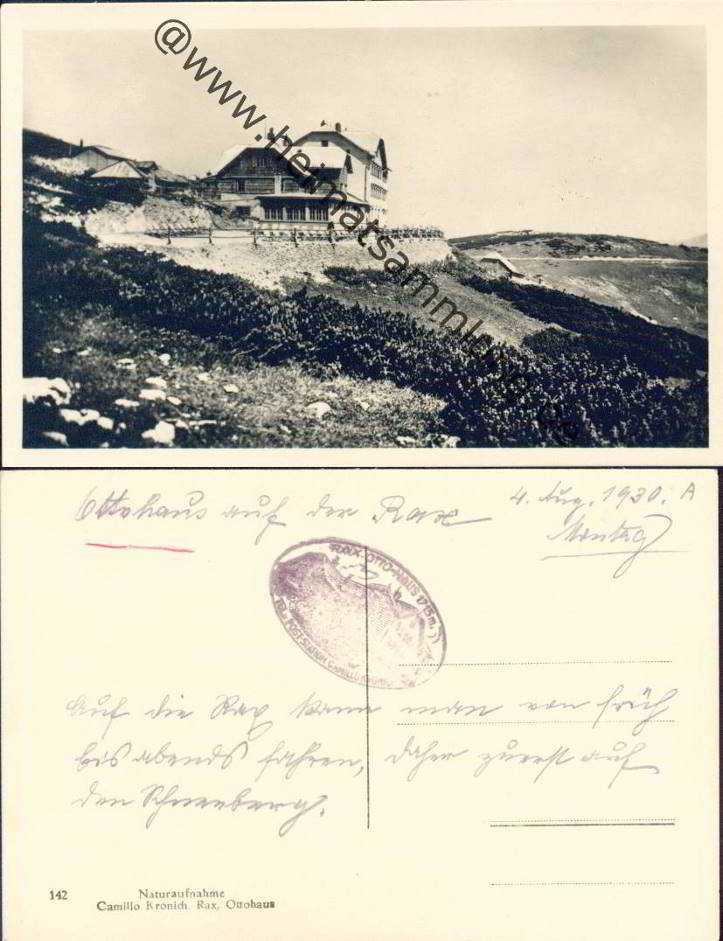 @www.heimatsammlung.de
Ottohaus auf der Rax
4. Aug. 1930. A
Montag
RAX-OTTO-HAUS 1715m.
POSTSTATION CAMILLO
Auf die Rax kann man von früh
bis abends fahren, daher zuerst auf
den Schneeberg.
142
Naturaufnahme
Camillo Kronich. Rax, Ottohaus